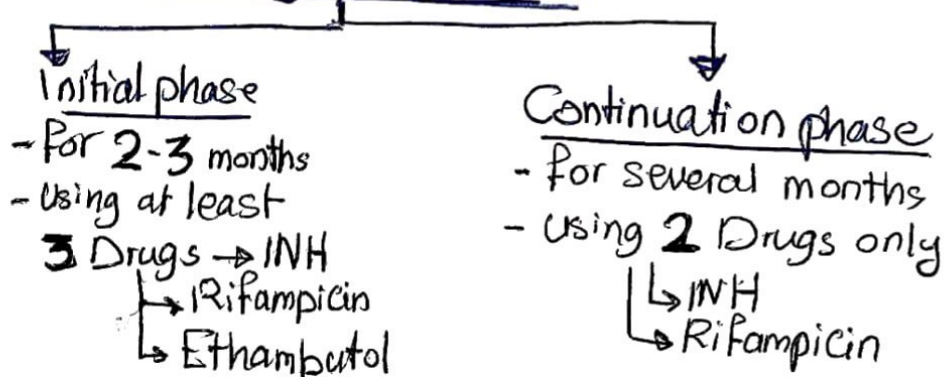 Initial phase
- for 2-3 months
- using at least
3 Drugs → INH
→ Rifampicin
→ Ethambutol
Continuation phase
- for several months
- using 2 Drugs only
→ INH
→ Rifampicin